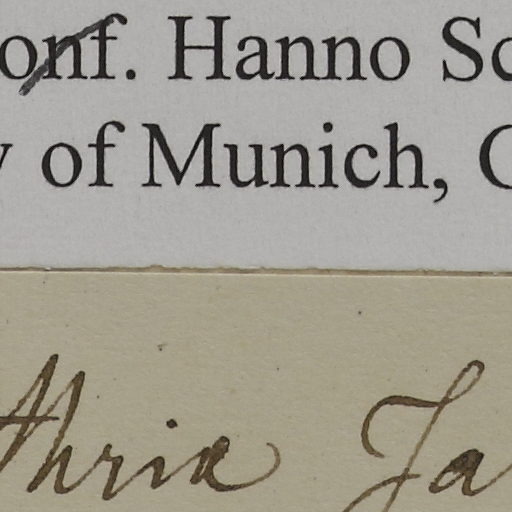 onf. Hanno Sc
y of Munich, G
thria Ja